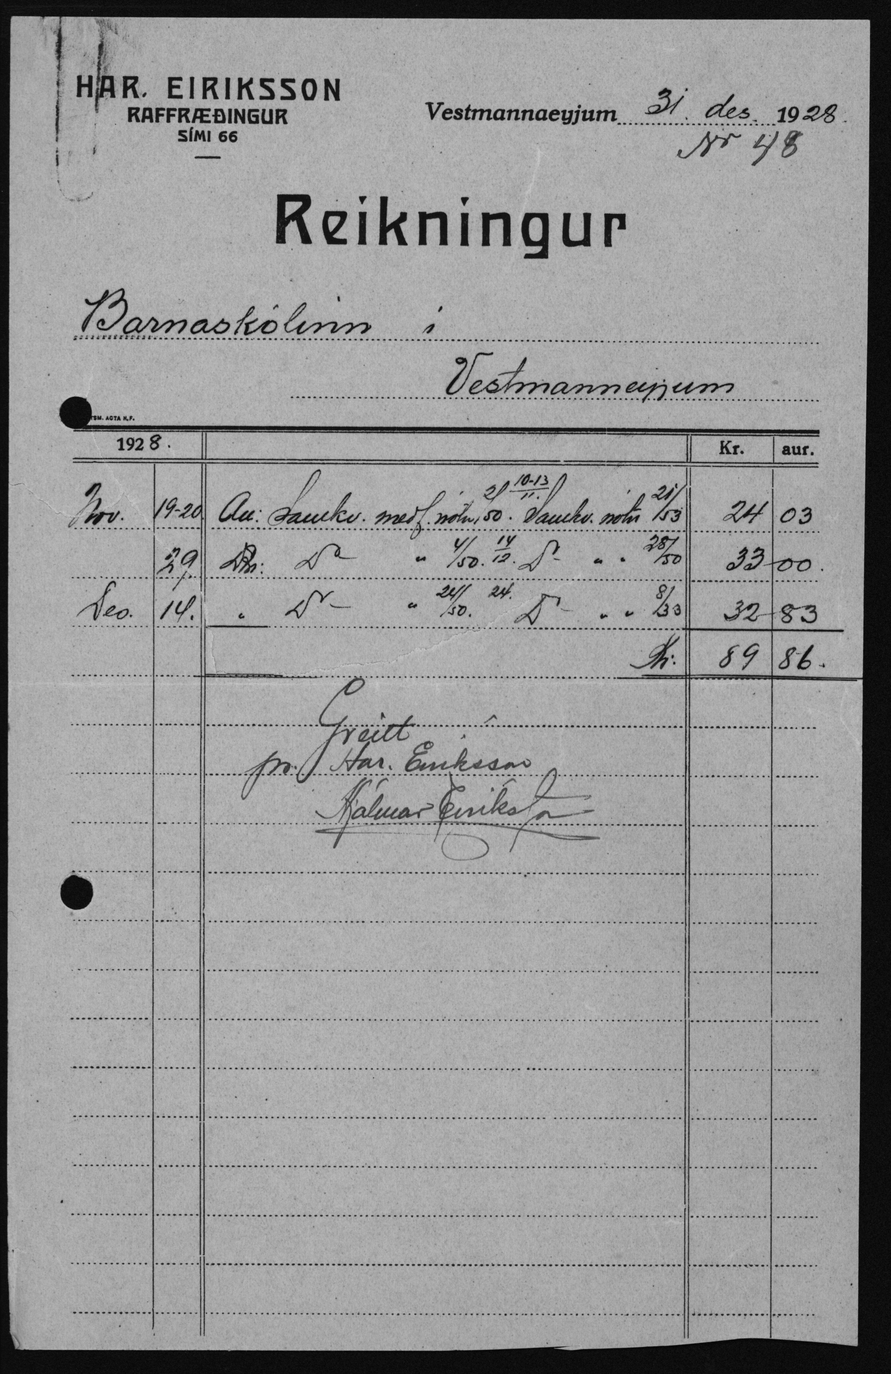 HAR. EIRIKSSON
RAFFRÆÐINGUR
SÍMI 66
Vestmannaeyjum 31. des. 1928.
Nr 48
Reikningur
Barnaskólinn í
Vestmanneyjum
ACTA H.F.
1928. Kr. aur.
Nov. 19-20 Samkv. medf. nótu 21/50. 10-13/11. Samkv. nótu 21/53 24 03
29. Do " 4/50. 14/12. Do " " 28/50 33 00.
Des. 14. " Do " 24/50. 24. Do " " 8/33 32 83
Kr: 89 86.
Greitt
pr. Har. Eiriksson
Hjálmar Eiríksson